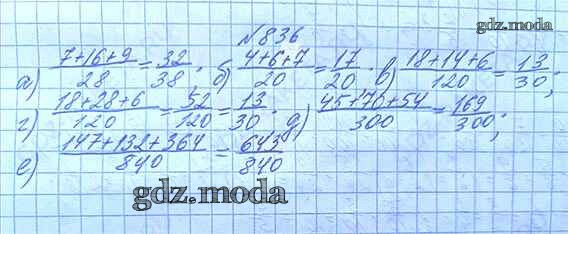 gdz.moda
№836
а) 7+16+9/28 = 32/38. б) 4+6+7/20 = 17/20. в) 18+14+6/120 = 13/30;
г) 18+28+6/120 = 52/120 = 13/30. д) 45+70+54/300 = 169/300;
е) 147+132+364/840 = 643/840
gdz.moda